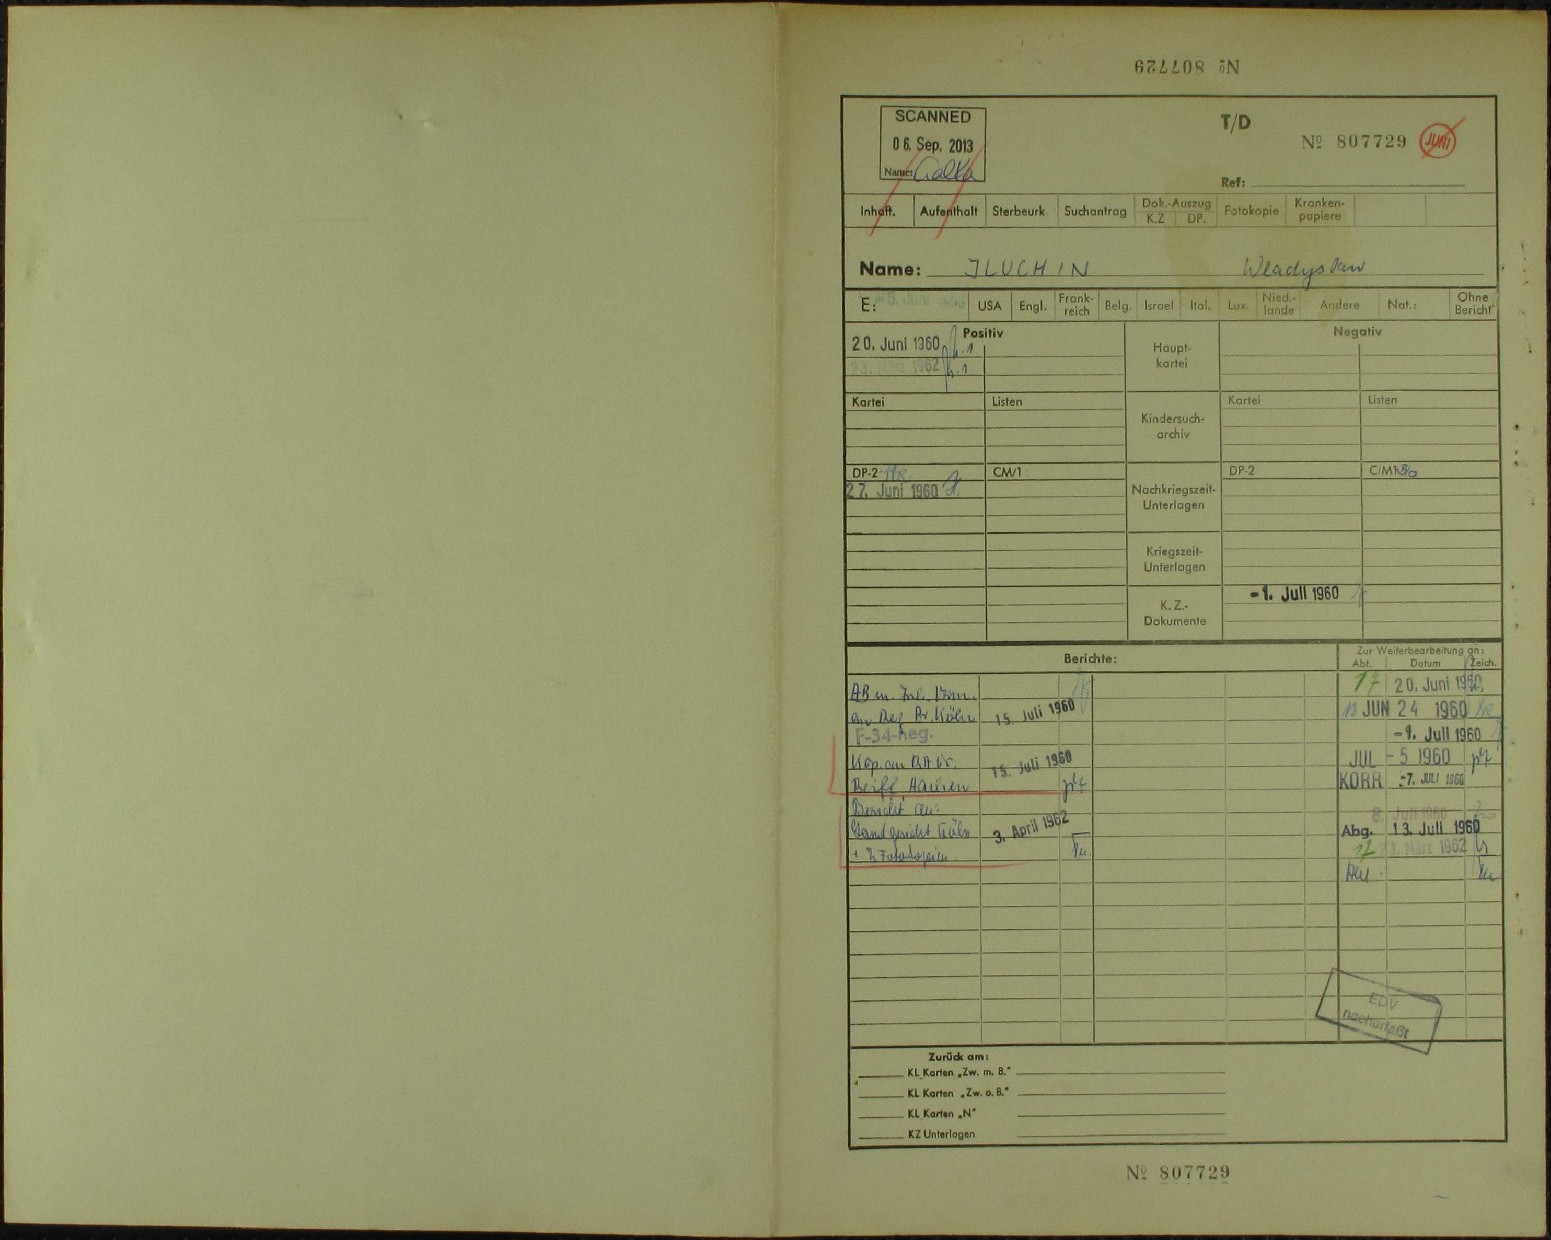 Nº 807729
SCANNED
06. Sep. 2013
Name:
T/D
Nº 807729 JUNI
Ref:
Inhaft. Aufenthalt Sterbeurk. Suchantrag Dok.-Auszug K.Z DP. Fotokopie Kranken-papiere
Name: JLUCHIN Wladyslaw
E: 5. Juni 1960 USA Engl. Frank-reich Belg. Israel Ital. Lux. Nied.-lande Andere Nat.: Ohne Bericht
Positiv Negativ
20. Juni 1960
Haupt-
kartei
23. März 1962
Kartei Listen Kartei Listen
Kindersuch-
archiv
DP-2 CM/1 DP-2 C/M1
27. Juni 1960
Nachkriegszeit-
Unterlagen
Kriegszeit-
Unterlagen
-1. Juli 1960
K. Z.-
Dokumente
Berichte: Zur Weiterbearbeitung an:
Abt. Datum Zeich.
17 20. Juni 1960
an Reg. Pr. Köln 15. Juli 1960 JUN 24 1960
F-34-neg. -1. Juli 1960
Kop. an RA Dr. 15. Juli 1960 JUL -5 1960
KORR -7. JULI 1960
8. Juli 1960
Landgericht Köln 3. April 1962 Abg. 13. Juli 1960
+ 2 Fotokopien. 17 23. März 1962
EDV
nacherfaßt
Zurück am:
KL Karten „Zw. m. B."
KL Karten „Zw. o. B."
KL Karten „N"
KZ Unterlagen
Nº 807729